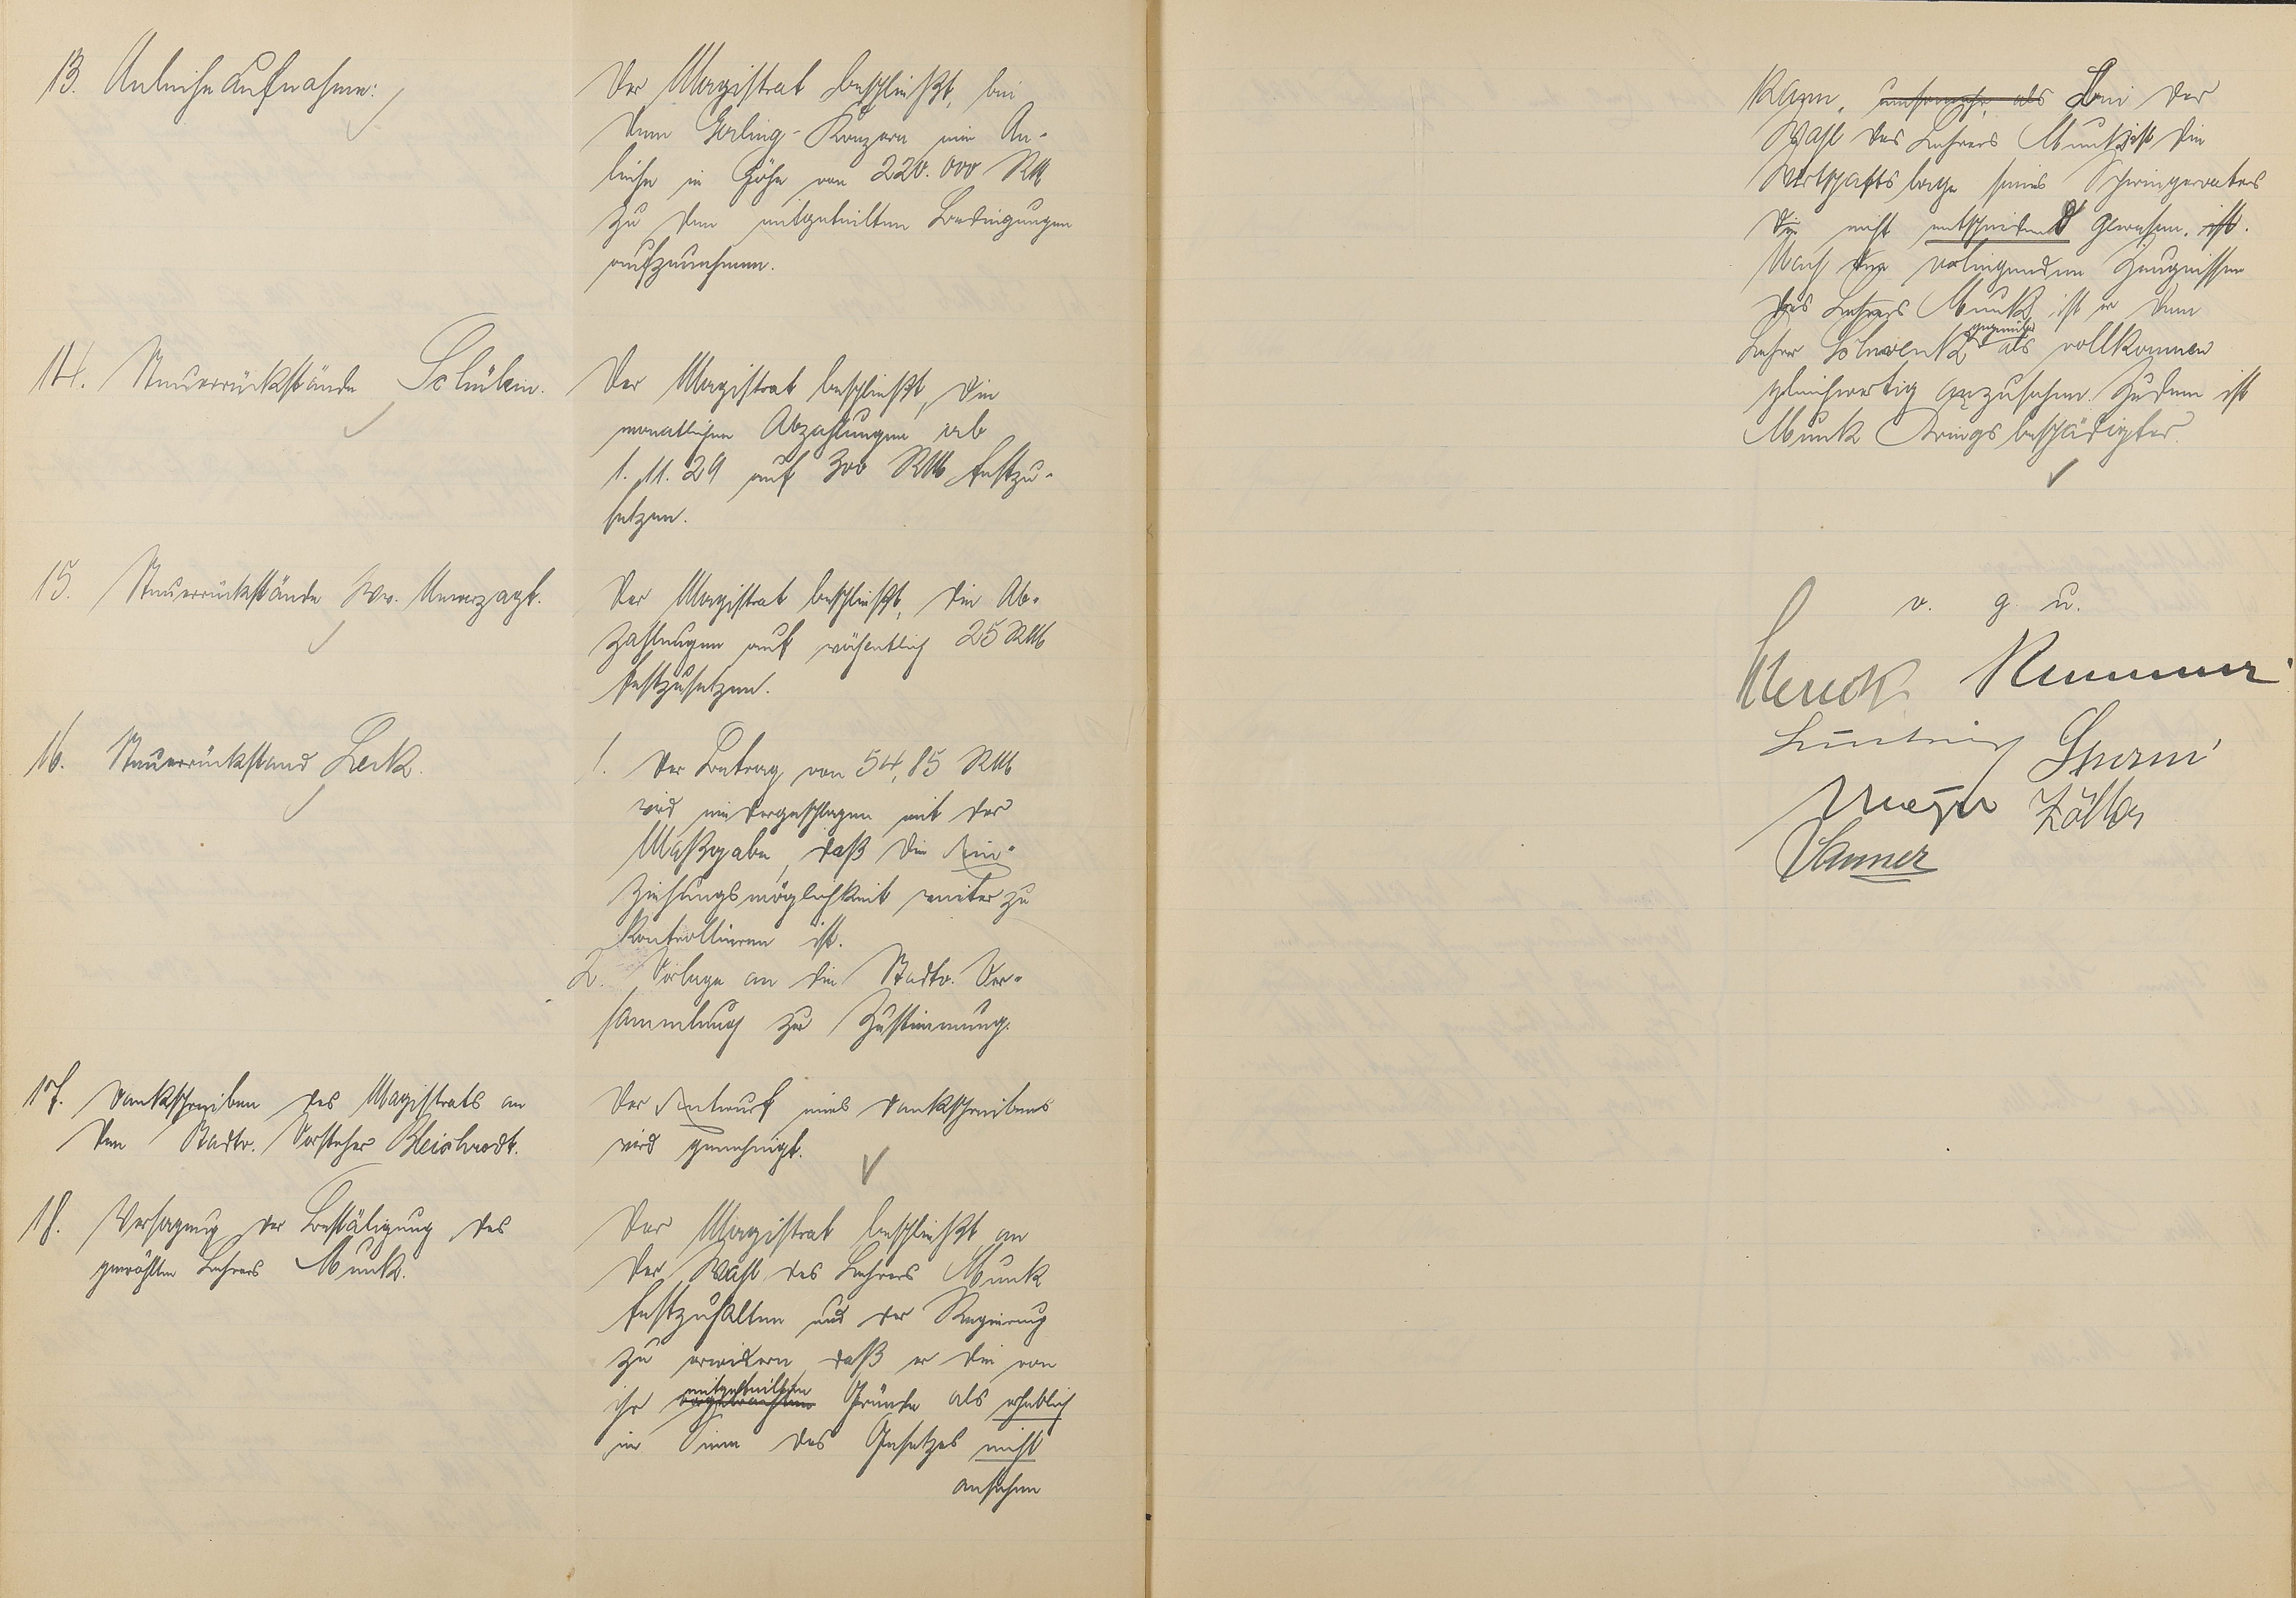 13. Anleiheaufnahme:
Der Magistrat beschließt, bei
dem Gerling-Konzern eine An-
leihe in Höhe von 220.000 RM
zu den mitgeteilten Bedingungen
aufzunehmen.
14. Steuerrückstände Schülein.
Der Magistrat beschließt, die
monatlichen Abzahlungen ab
1. 11. 29 auf 300 RM festzu-
setzen.
15. Steuerrückstände Ww. Unverzagt.
Der Magistrat beschließt, die Ab-
zahlungen auf wöchentlich 25 RM
festzusetzen.
16. Steuerrückstand Leck.
1. Der Betrag von 54,85 RM
wird niedergeschlagen mit der
Maßgabe, daß die Ein-
ziehungsmöglichkeit weiter zu
kontrollieren ist.
2. Vorlage an die Stadtv. Ver-
sammlung zur Zustimmung.
17. Dankschreiben des Magistrats an
den Stadtv. Vorsteher Bleibrodt.
Der Entwurf eines Dankschreibens
wird genehmigt.
18. Versagung der Bestätigung des
gewählten Lehrers Munk.
Der Magistrat beschließt an
der Wahl des Lehrers Munk
festzuhalten und der Regierung
zu erwidern, daß er die von
ihr mitgeteilten Gründe als erheblich
im Sinne des Gesetzes nicht
ansehen
kann, umsomehr als Bei der
Wahl des Lehrers Munk ist die
Wirtschaftslage seines Schwiegervaters
die nicht entscheidend gewesen. ist.
Nach den vorliegenden Zeugnissen
des Lehrers Munk ist er dem
Lehrer Schwenk gegenüber als vollkommen
gleichwertig anzusehen. Zudem ist
Munk Kriegsbeschädigter.
v. g. u.
Kummer
Sturm
Meyer Zöller
Wanner